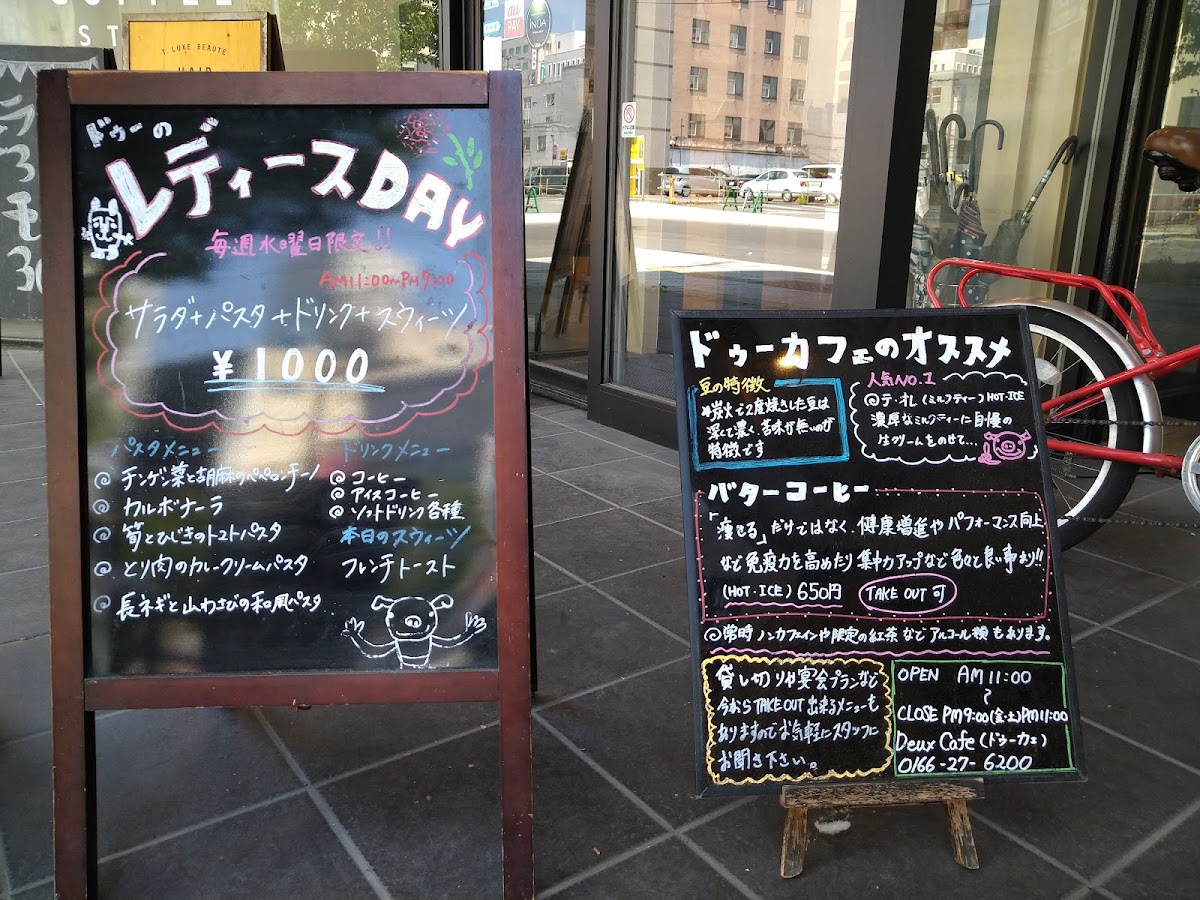 T LUXE BEAUTE
HAIR
au
PAY
ドゥーの
レディースDAY
毎週水曜日限定!!
AM11:00~PM9:00
サラダ+パスタ+ドリンク+スウィーツ
¥1000
パスタメニュー
@チンゲン菜と胡麻のペペロンチーノ
@カルボナーラ
@筍とひじきのトマトパスタ
@とり肉のカレークリームパスタ
@長ネギと山わさびの和風パスタ
ドリンクメニュー
@コーヒー
@アイスコーヒー
@ソフトドリンク各種
本日のスウィーツ
フレンチトースト
ドゥーカフェのオススメ
豆の特徴
*炭火で2度焼きした豆は
深くて濃く、苦味が無いのが
特徴です
人気NO.1
@テ・オレ(ミルクティー)HOT・ICE
濃厚なミルクティーに自慢の
生クリームをのせて...
バターコーヒー
「痩せる」だけではなく、健康増進やパフォーマンス向上
など免疫力を高めたり集中力アップなど色々と良い事あり!!
(HOT・ICE)650円 TAKE OUT 可
@常時ノンカフェインや限定の紅茶などアルコール類もあります。
貸し切りや宴会プランなど
今からTAKE OUT出来るメニューも
ありますのでお気軽にスタッフに
お聞き下さい。
OPEN AM11:00
~
CLOSE PM9:00(金・土)PM11:00
Deux Cafe(ドゥーカフェ)
0166-27-6200